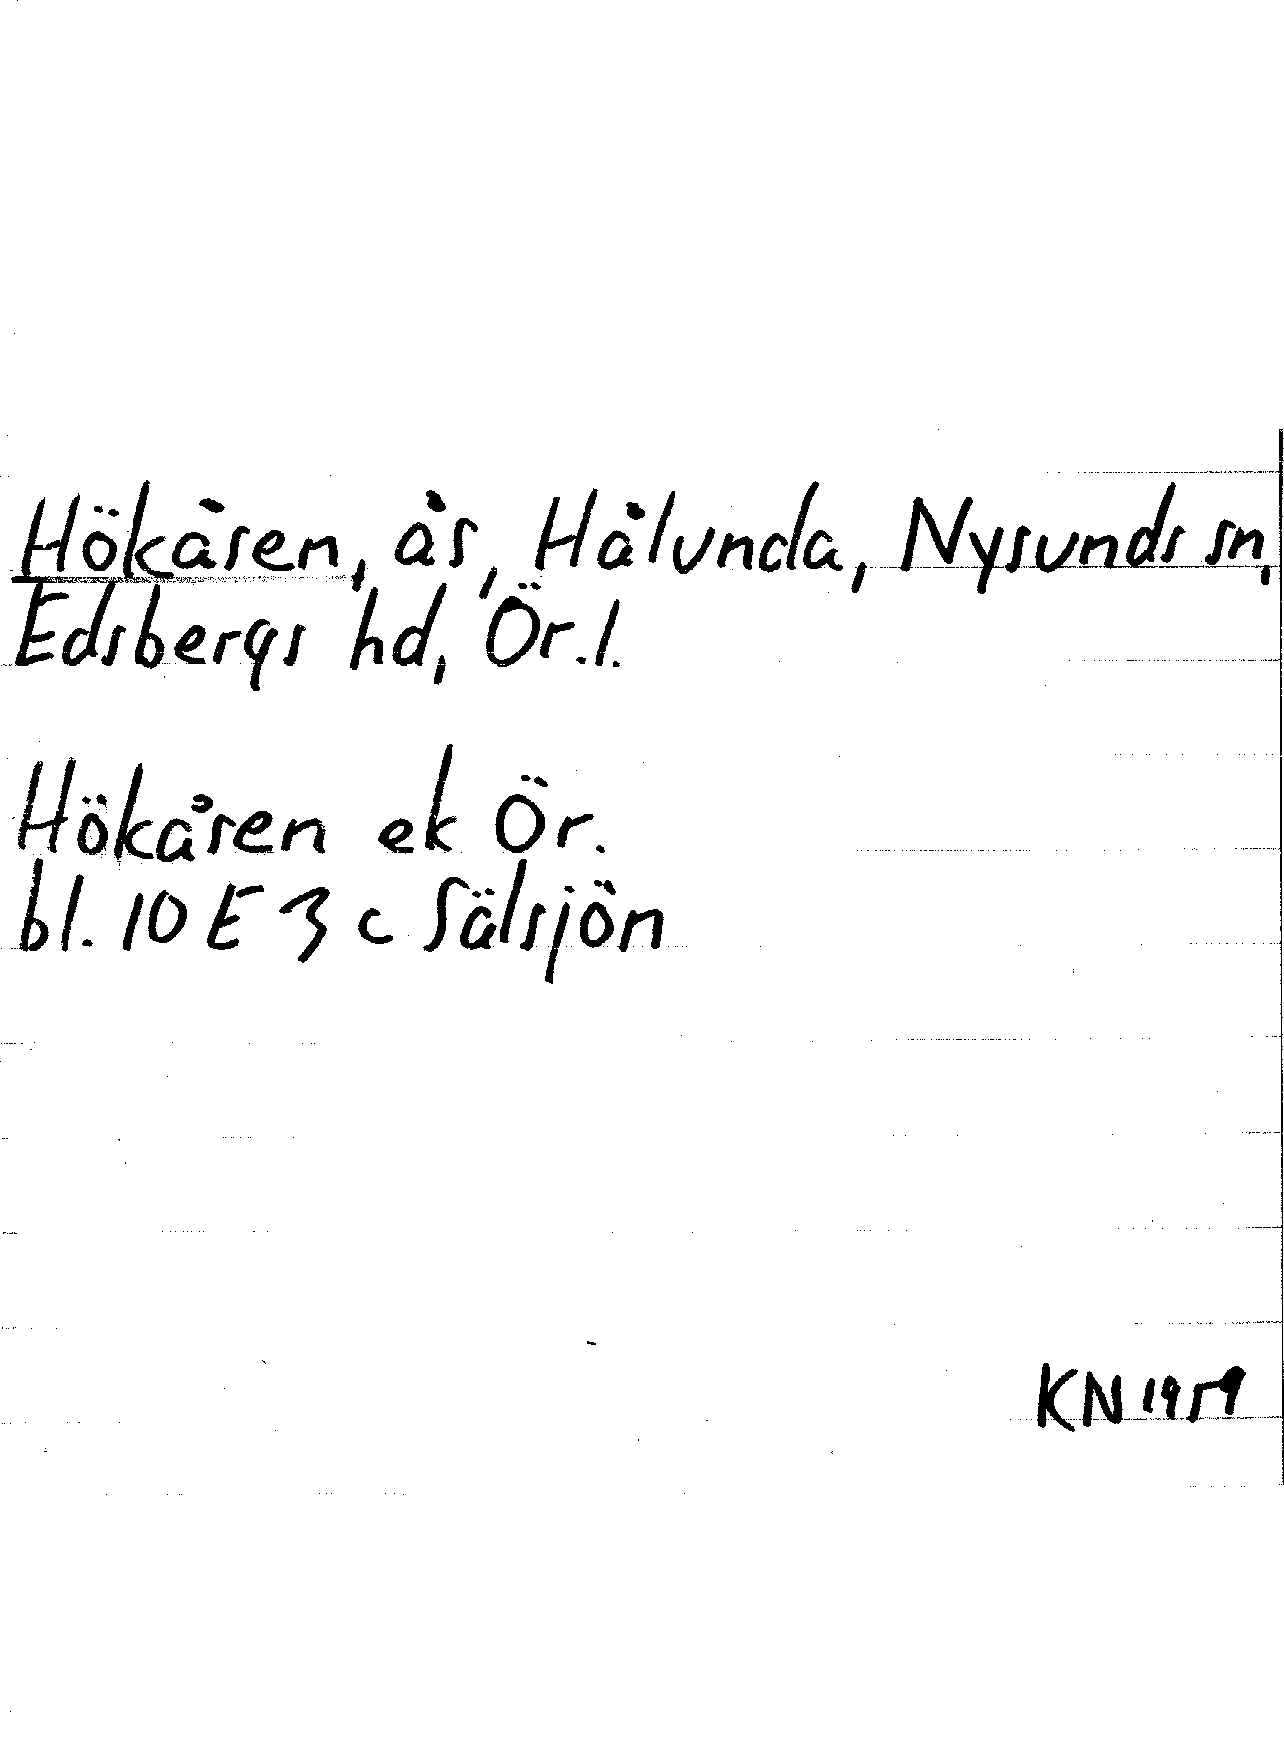 Hökåsen, ås, Hålunda, Nysunds sn,
Edsbergs hd, Ör.l.
Hökåsen ek Ör.
bl. 10 E 3 c Sälsjön
KN 1959